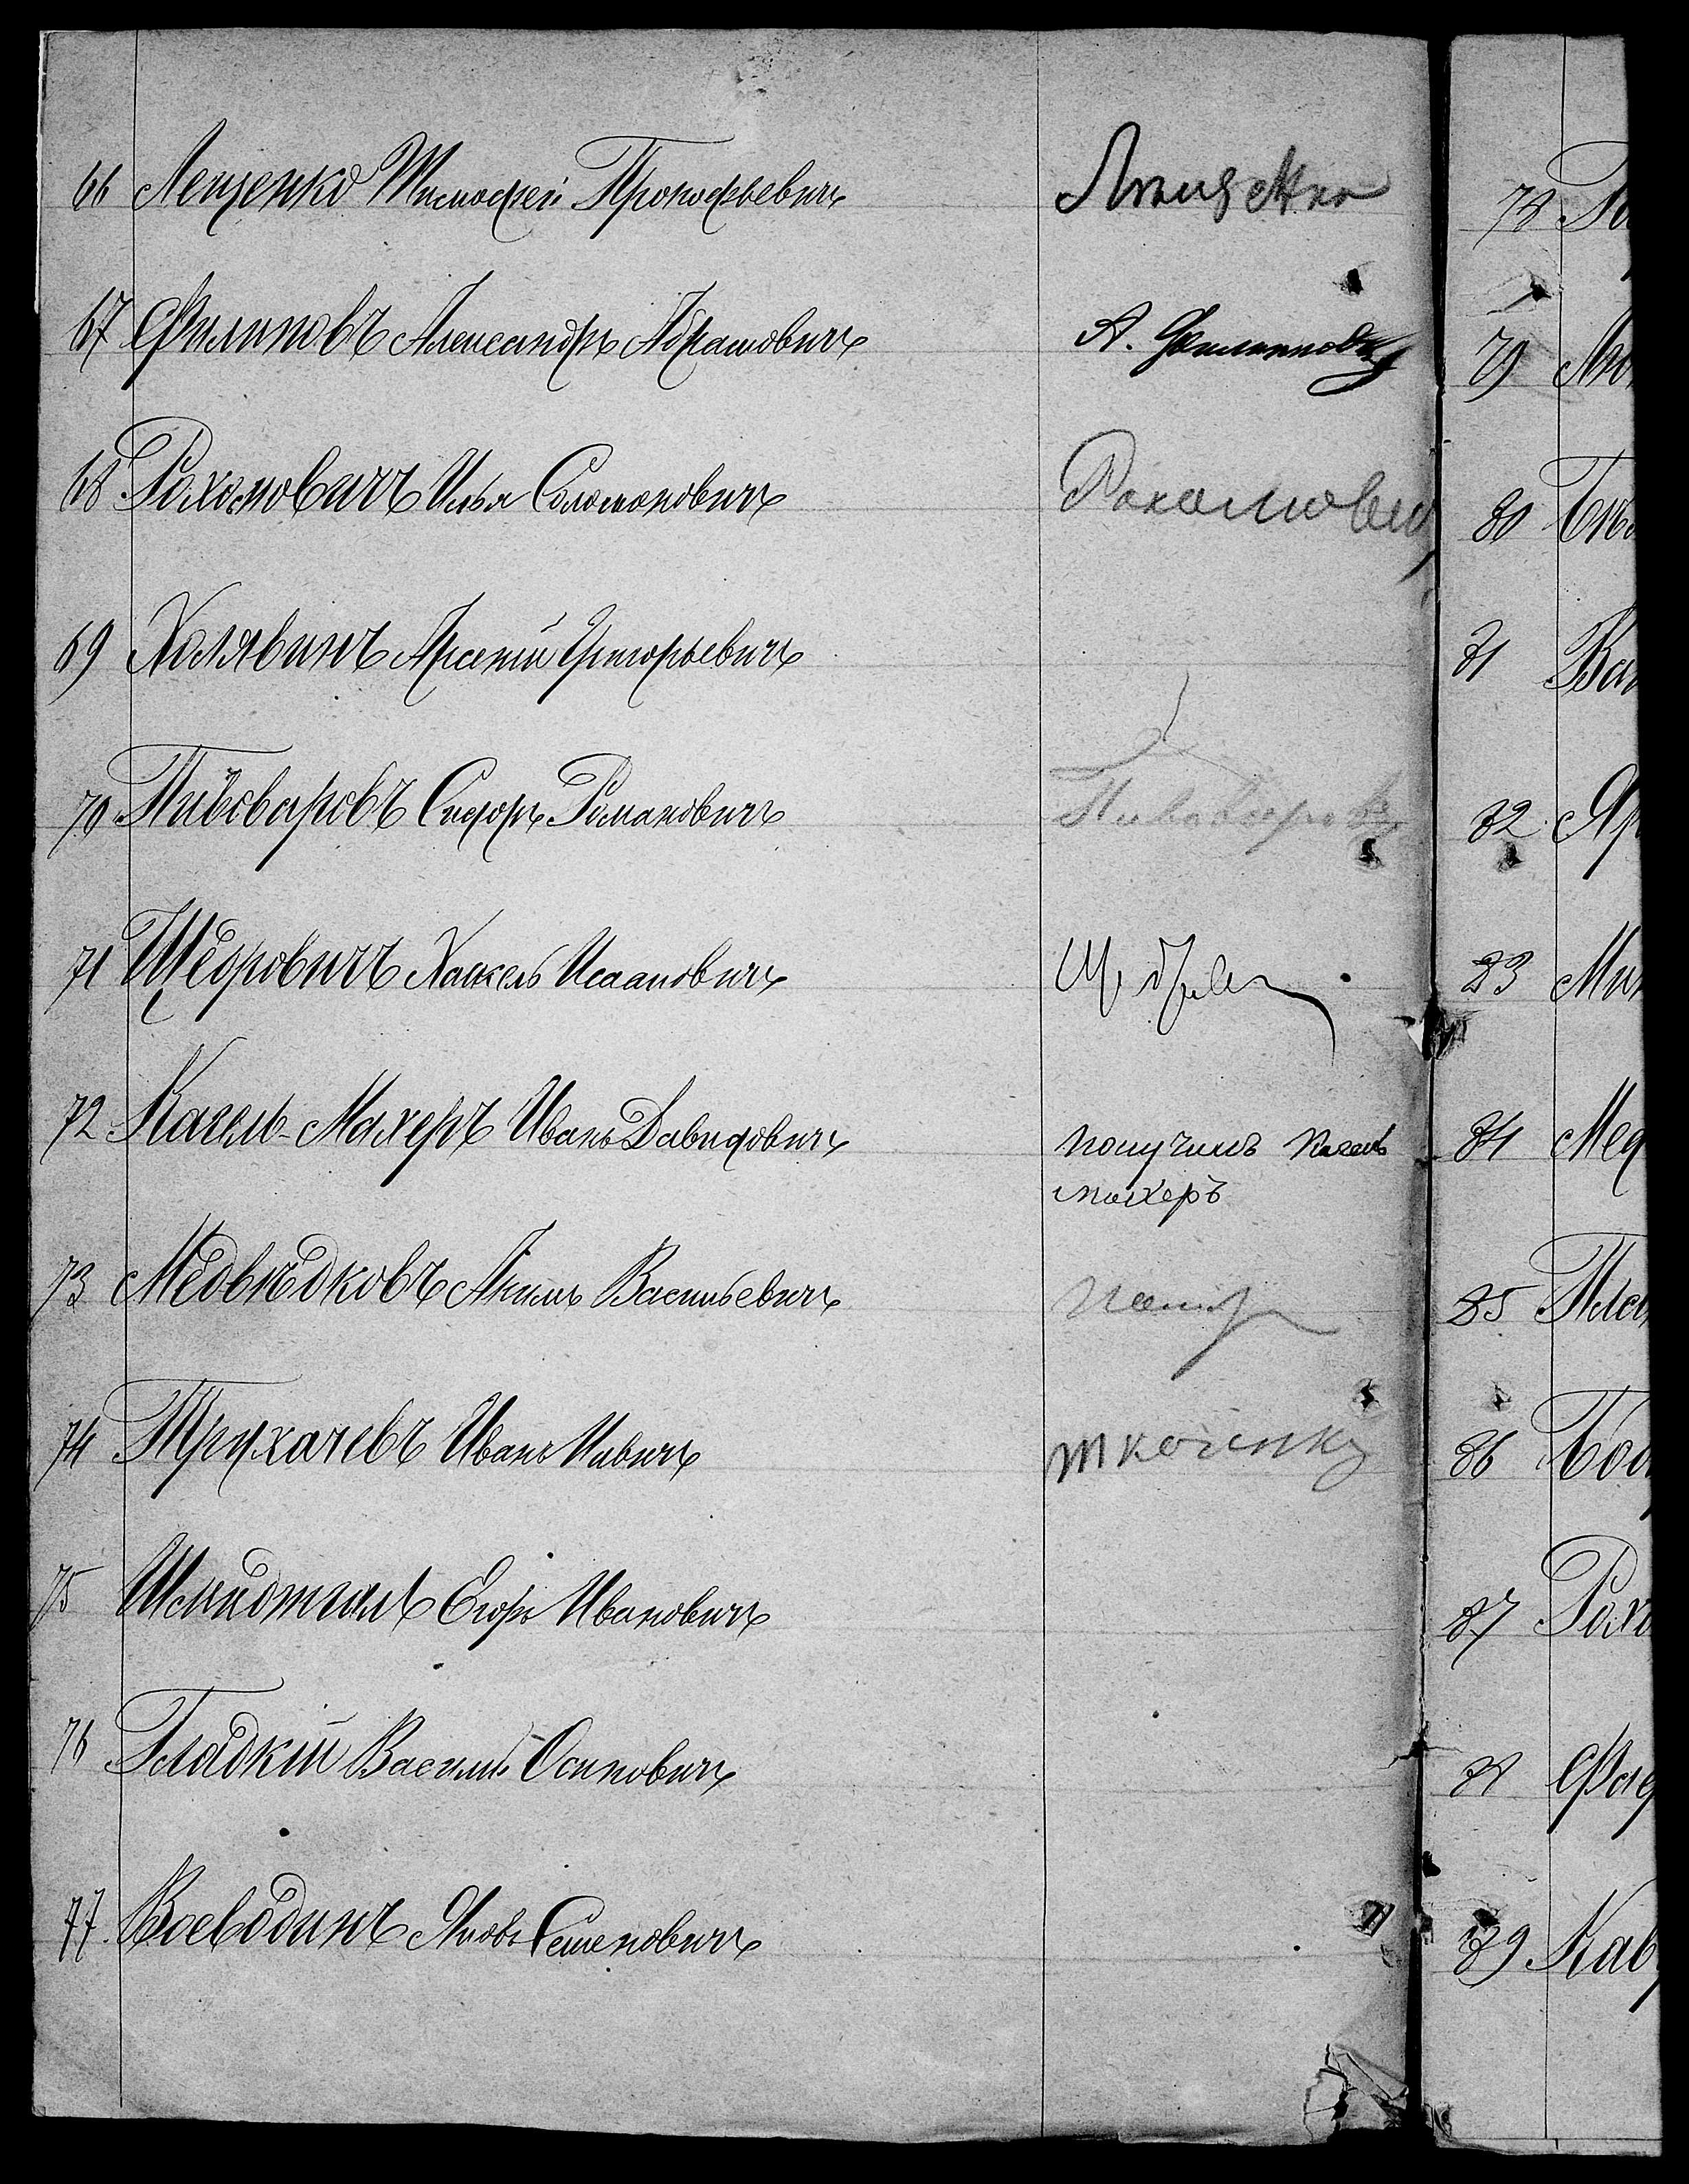 66 Лещенко Тимофей Прокофьевичъ Лѣщенко
67 Филиповъ Александръ Абрамовичъ А. Филипповъ
68 Рохомовичъ Илья Соломоновичъ Рахамови
69 Холявинъ Арсенiй Григорьевичъ
70 Пивоваровъ Сидоръ Романовичъ Пивоваровъ
71 Щедровичъ Хацкель Исааковичъ
72 Кагель-Махеръ Иванъ Давидовичъ получилъ Кагель
махеръ
73 Медвѣдковъ Акимъ Васильевичъ
74 Трухачевъ Иванъ Ивичъ
75 Егоръ Ивановичъ
76 Гладкiй Василiй Осиповичъ
77 Воеводинъ Яковъ Семеновичъ
78
79
80
81
82 Яр
83 Ми
84 Мед
85
86
87 Рох
88 Фад
89 Кав